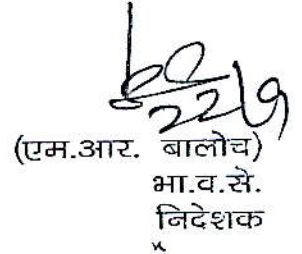 (एम.आर. बालोच)
भा.व.से.
निदेशक